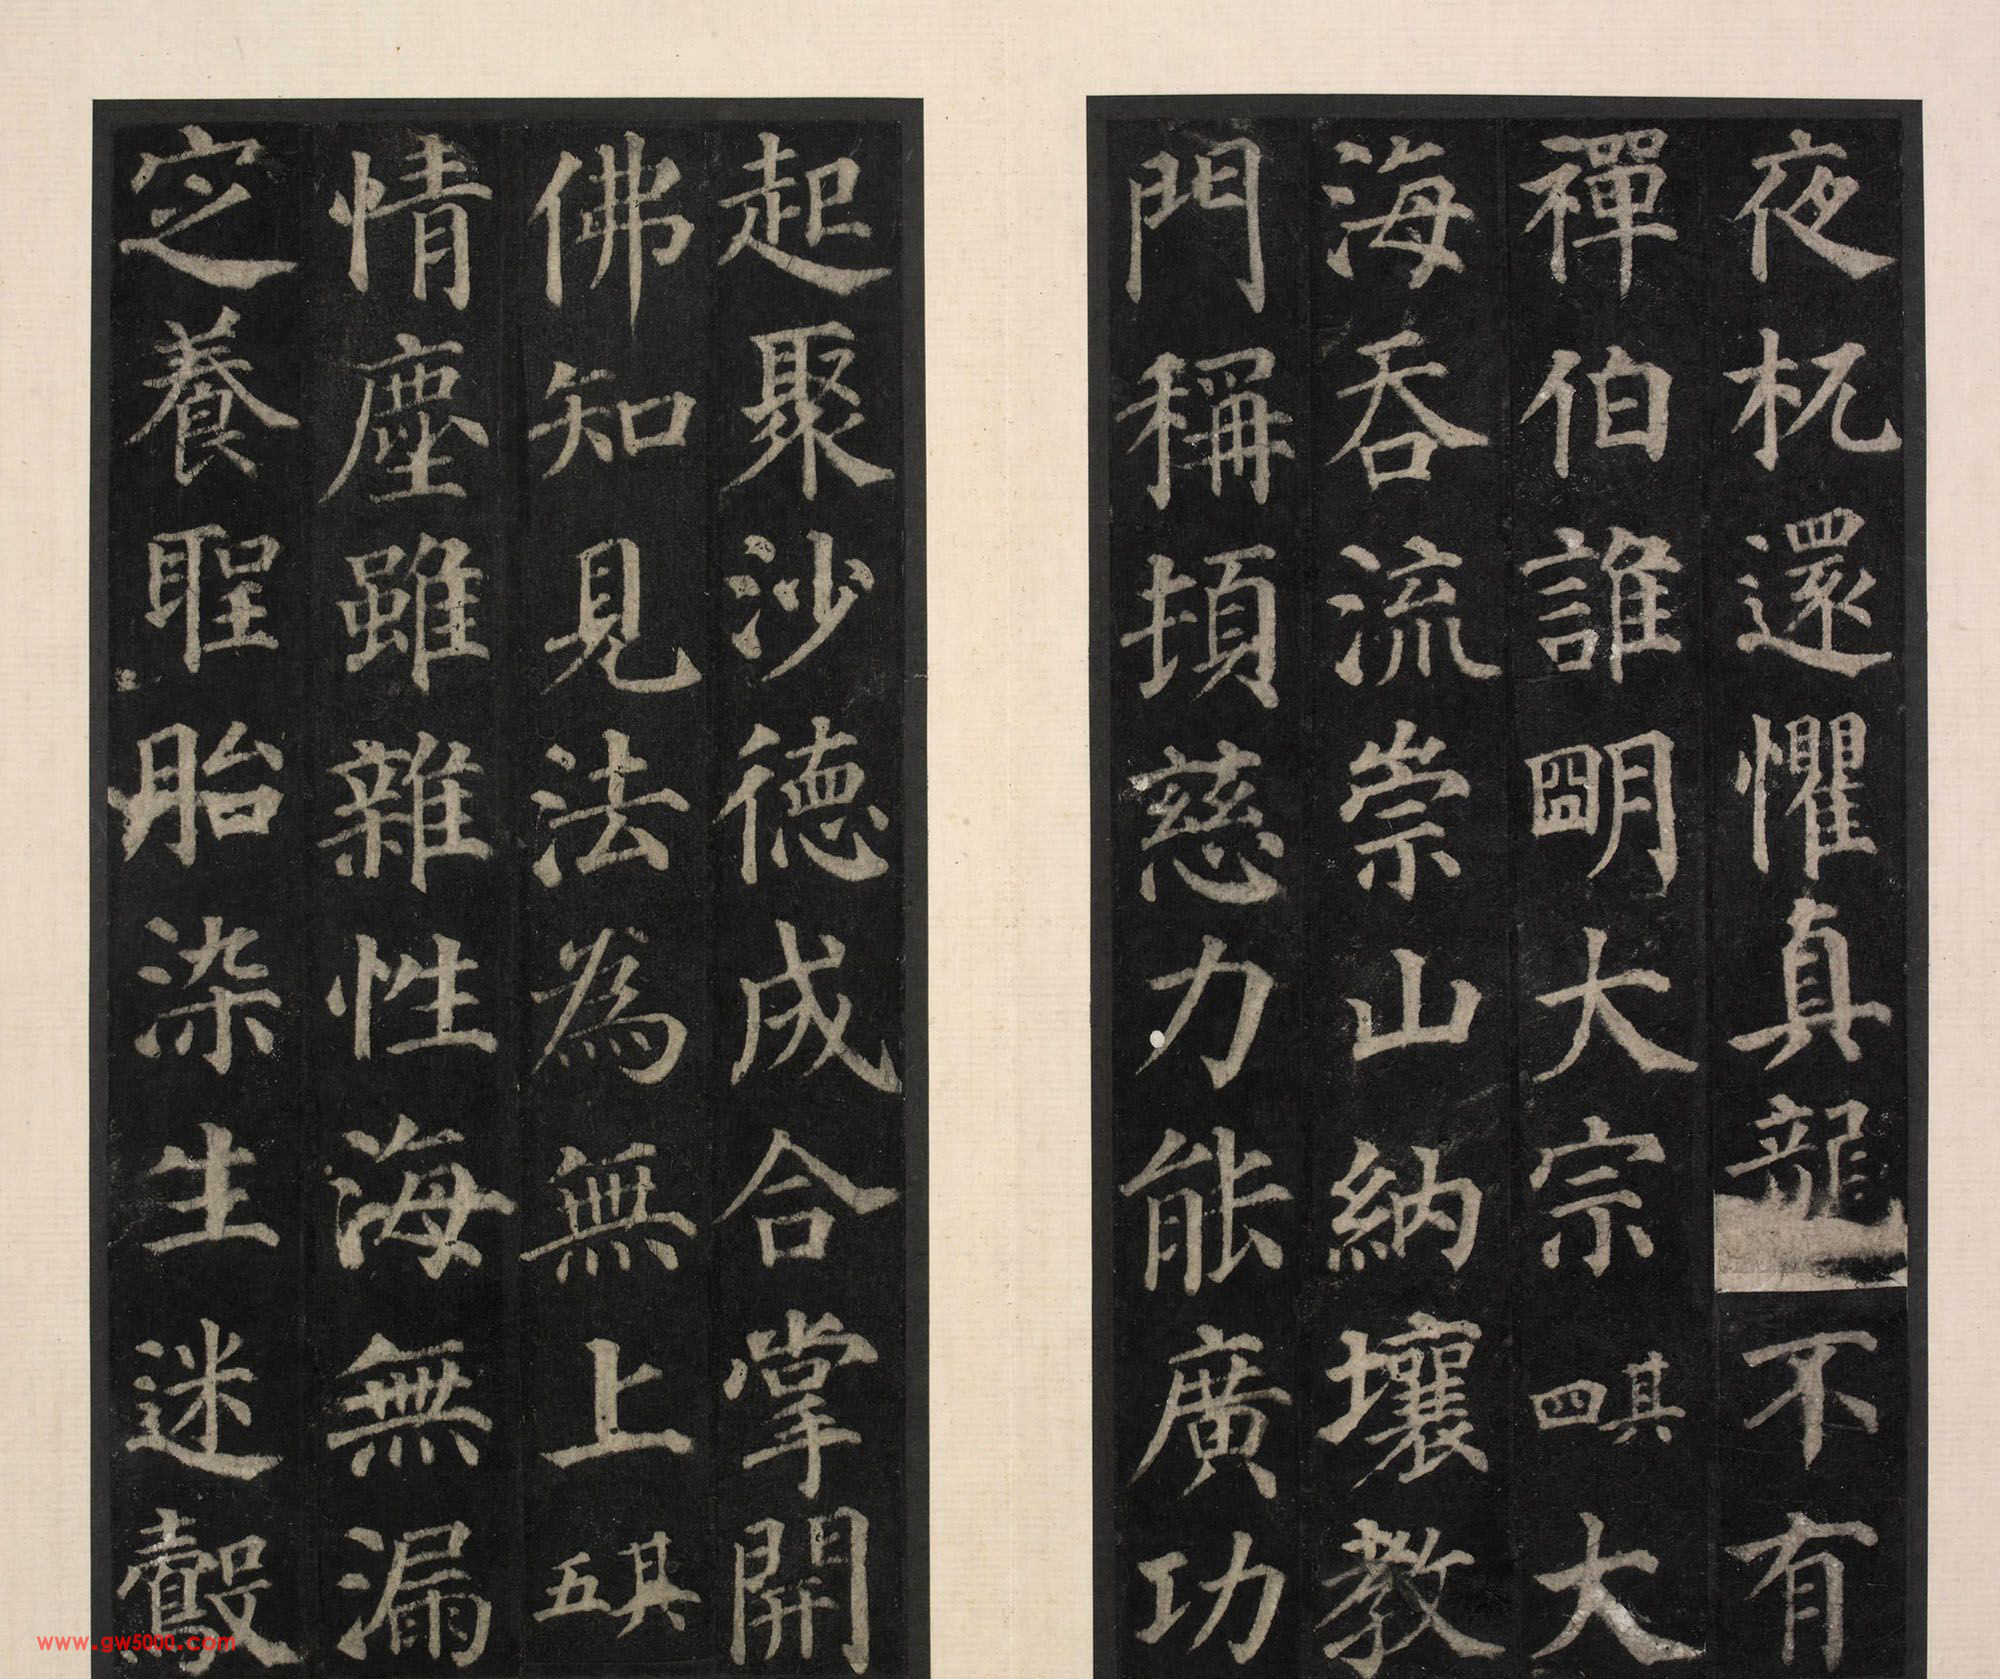 夜杌還懼真龍不有
禪伯誰明大宗其四大
海吞流崇山納壤教
門稱頓慈力能廣功
起聚沙德成合掌開
佛知見法為無上其五
情塵雖雜性海無漏
定養聖胎染生迷鷇
www.gw5000.com